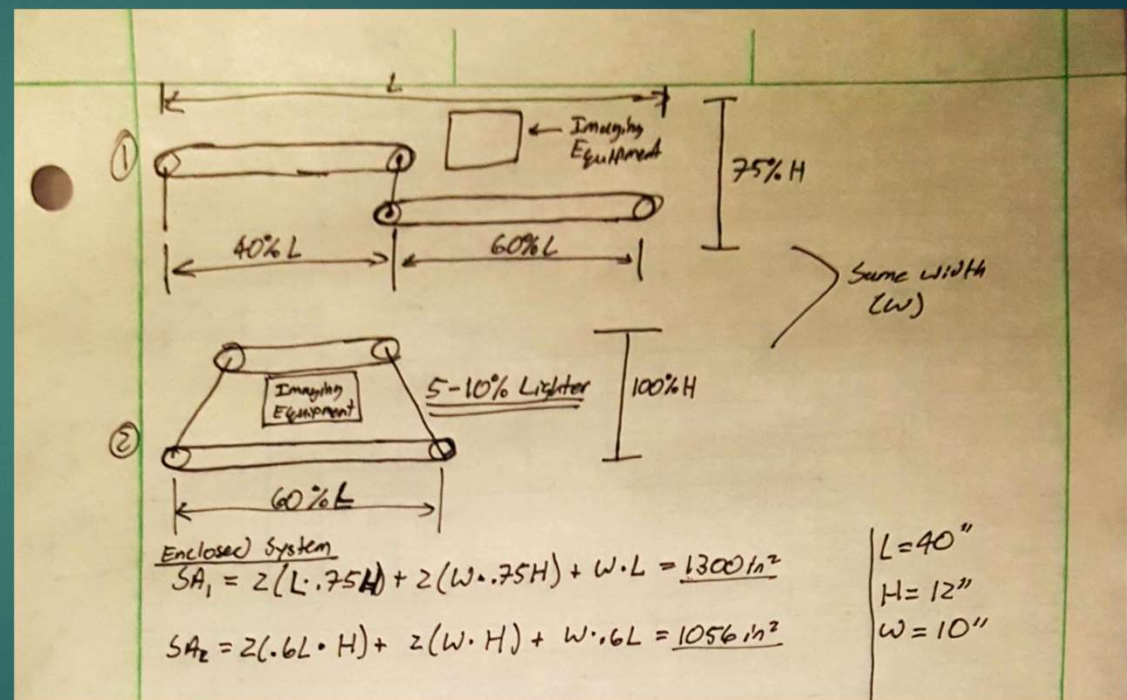 L
①
Imaging
Equipment
75% H
40% L
60% L
Same width
(W)
Imaging
Equipment
5-10% Lighter
100% H
②
60% L
Enclosed System
SA₁ = 2(L·.75H) + 2(W·.75H) + W·L = 1300 in²
SA₂ = 2(.6L·H) + 2(W·H) + W·.6L = 1056 in²
L=40"
H=12"
W=10"